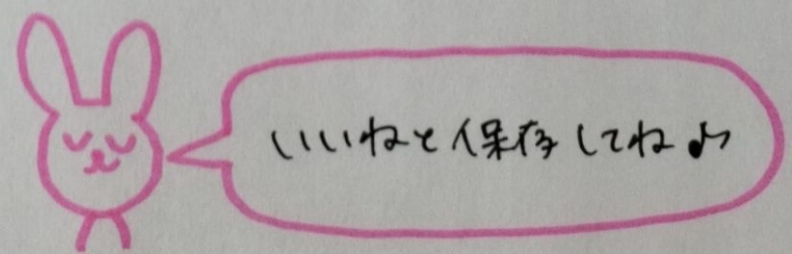 いいねと保存してね♪